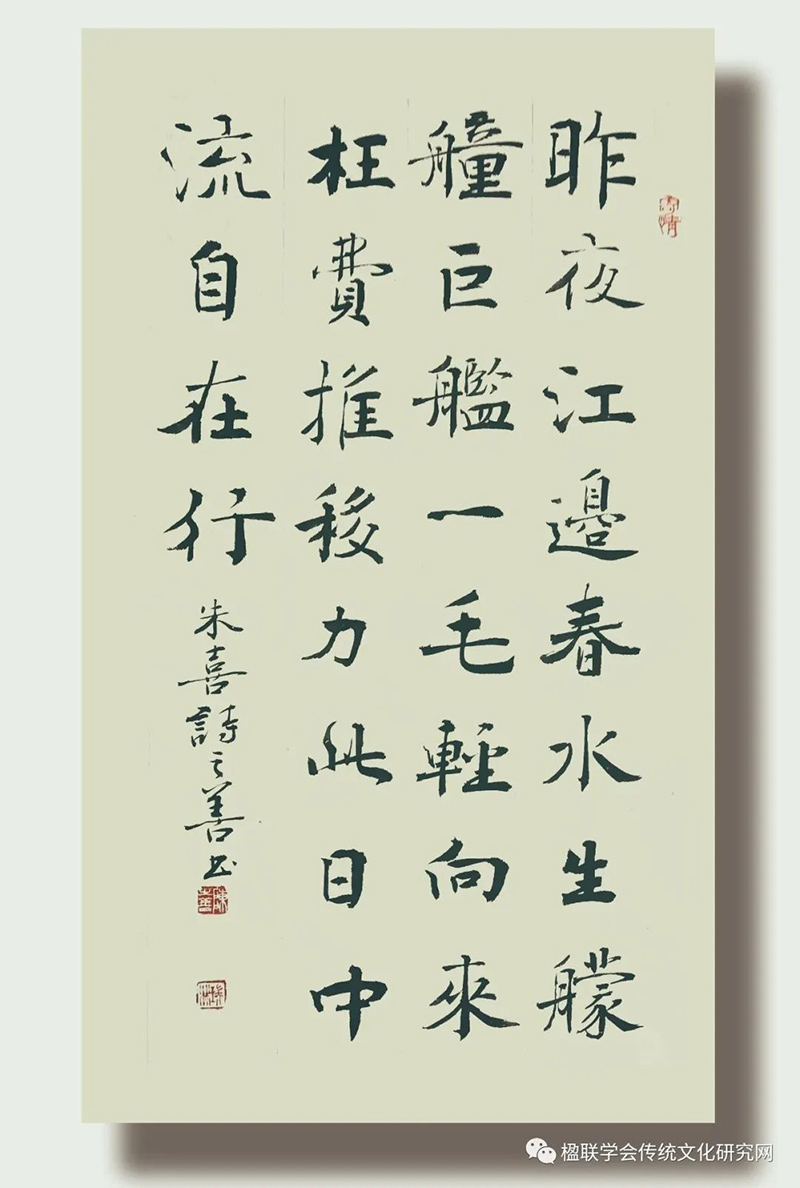 昨夜江邊春水生艨
艟巨艦一毛輕向來
枉費推移力此日中
流自在行
朱喜詩之善书
楹联学会传统文化研究网